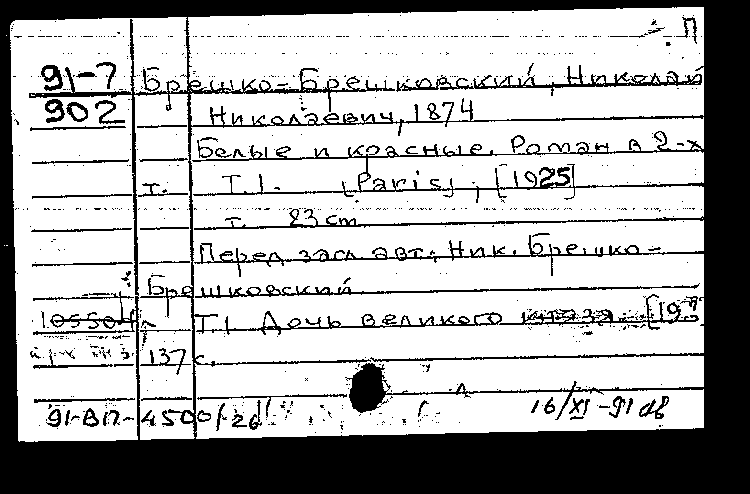 П
91-7 Брешко-Брешковский, Николай
902 Николаевич, 1874
Белые и красные. Роман в 2-х
т. Т.1. [Paris], [1925]
т. 23 cm
Перед загл. авт.: Ник. Брешко-
Брешковский
Т.1 Дочь великого князя [19
137 с.
91-ВП-4500/-26 16/XI-91